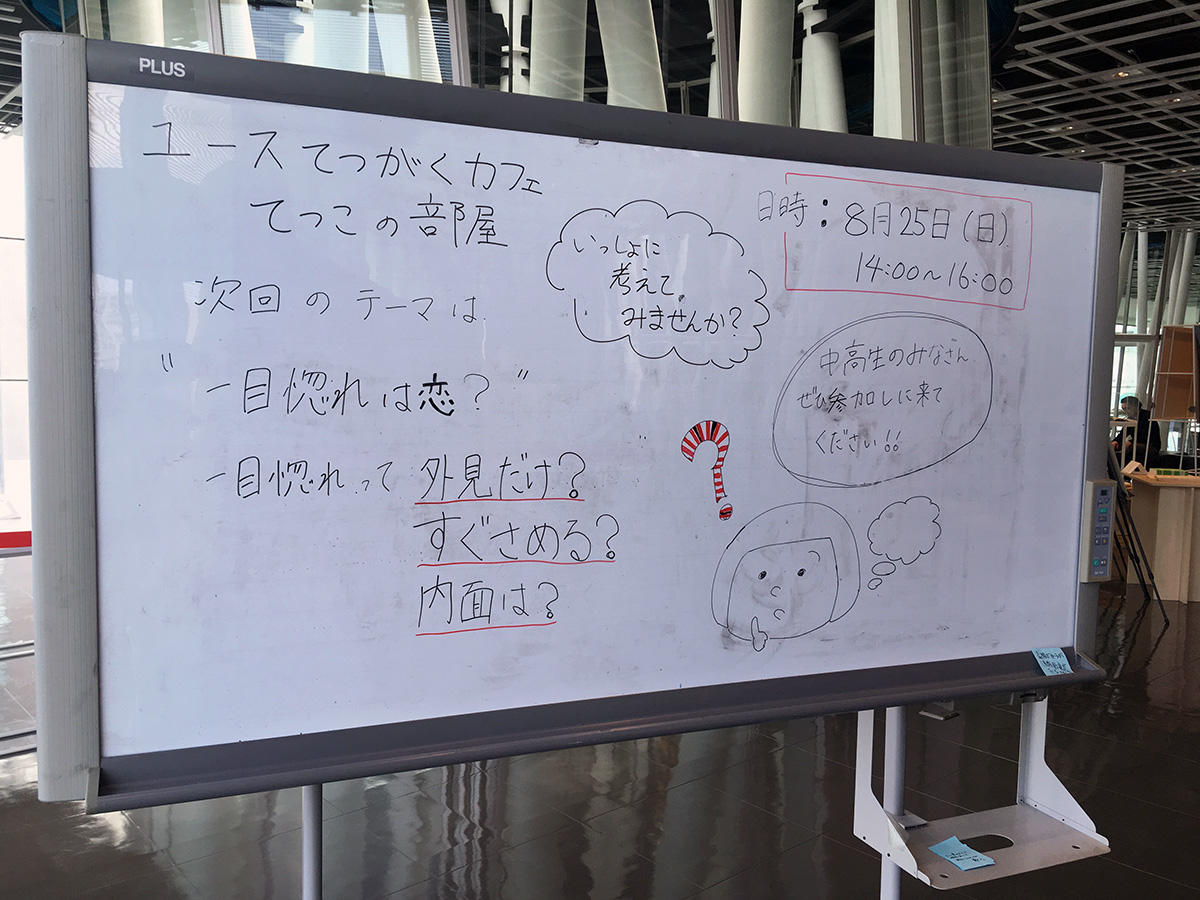 PLUS
ユース てつがく カフェ
てつこの部屋
次回の テーマは
"一目惚れは恋?"
一目惚れって 外見だけ?
すぐさめる?
内面は?
いっしょに
考えて
みませんか?
日時: 8月25日(日)
14:00~16:00
中高生のみなさん
ぜひ参加しに来て
ください!!
?